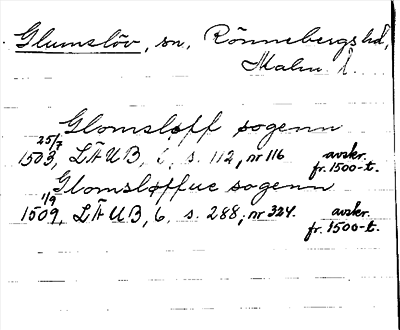 Glumslöv, sn, Rönnebergs hd,
Malm. l.
Glomsløff sogenn
25/7
1503, LÄUB, 6, s. 112, nr 116 avskr. fr. 1500-t.
Glomsløffue sogenn
1/9
1509, LÄUB, 6, s. 288, nr 324. avskr. fr. 1500-t.